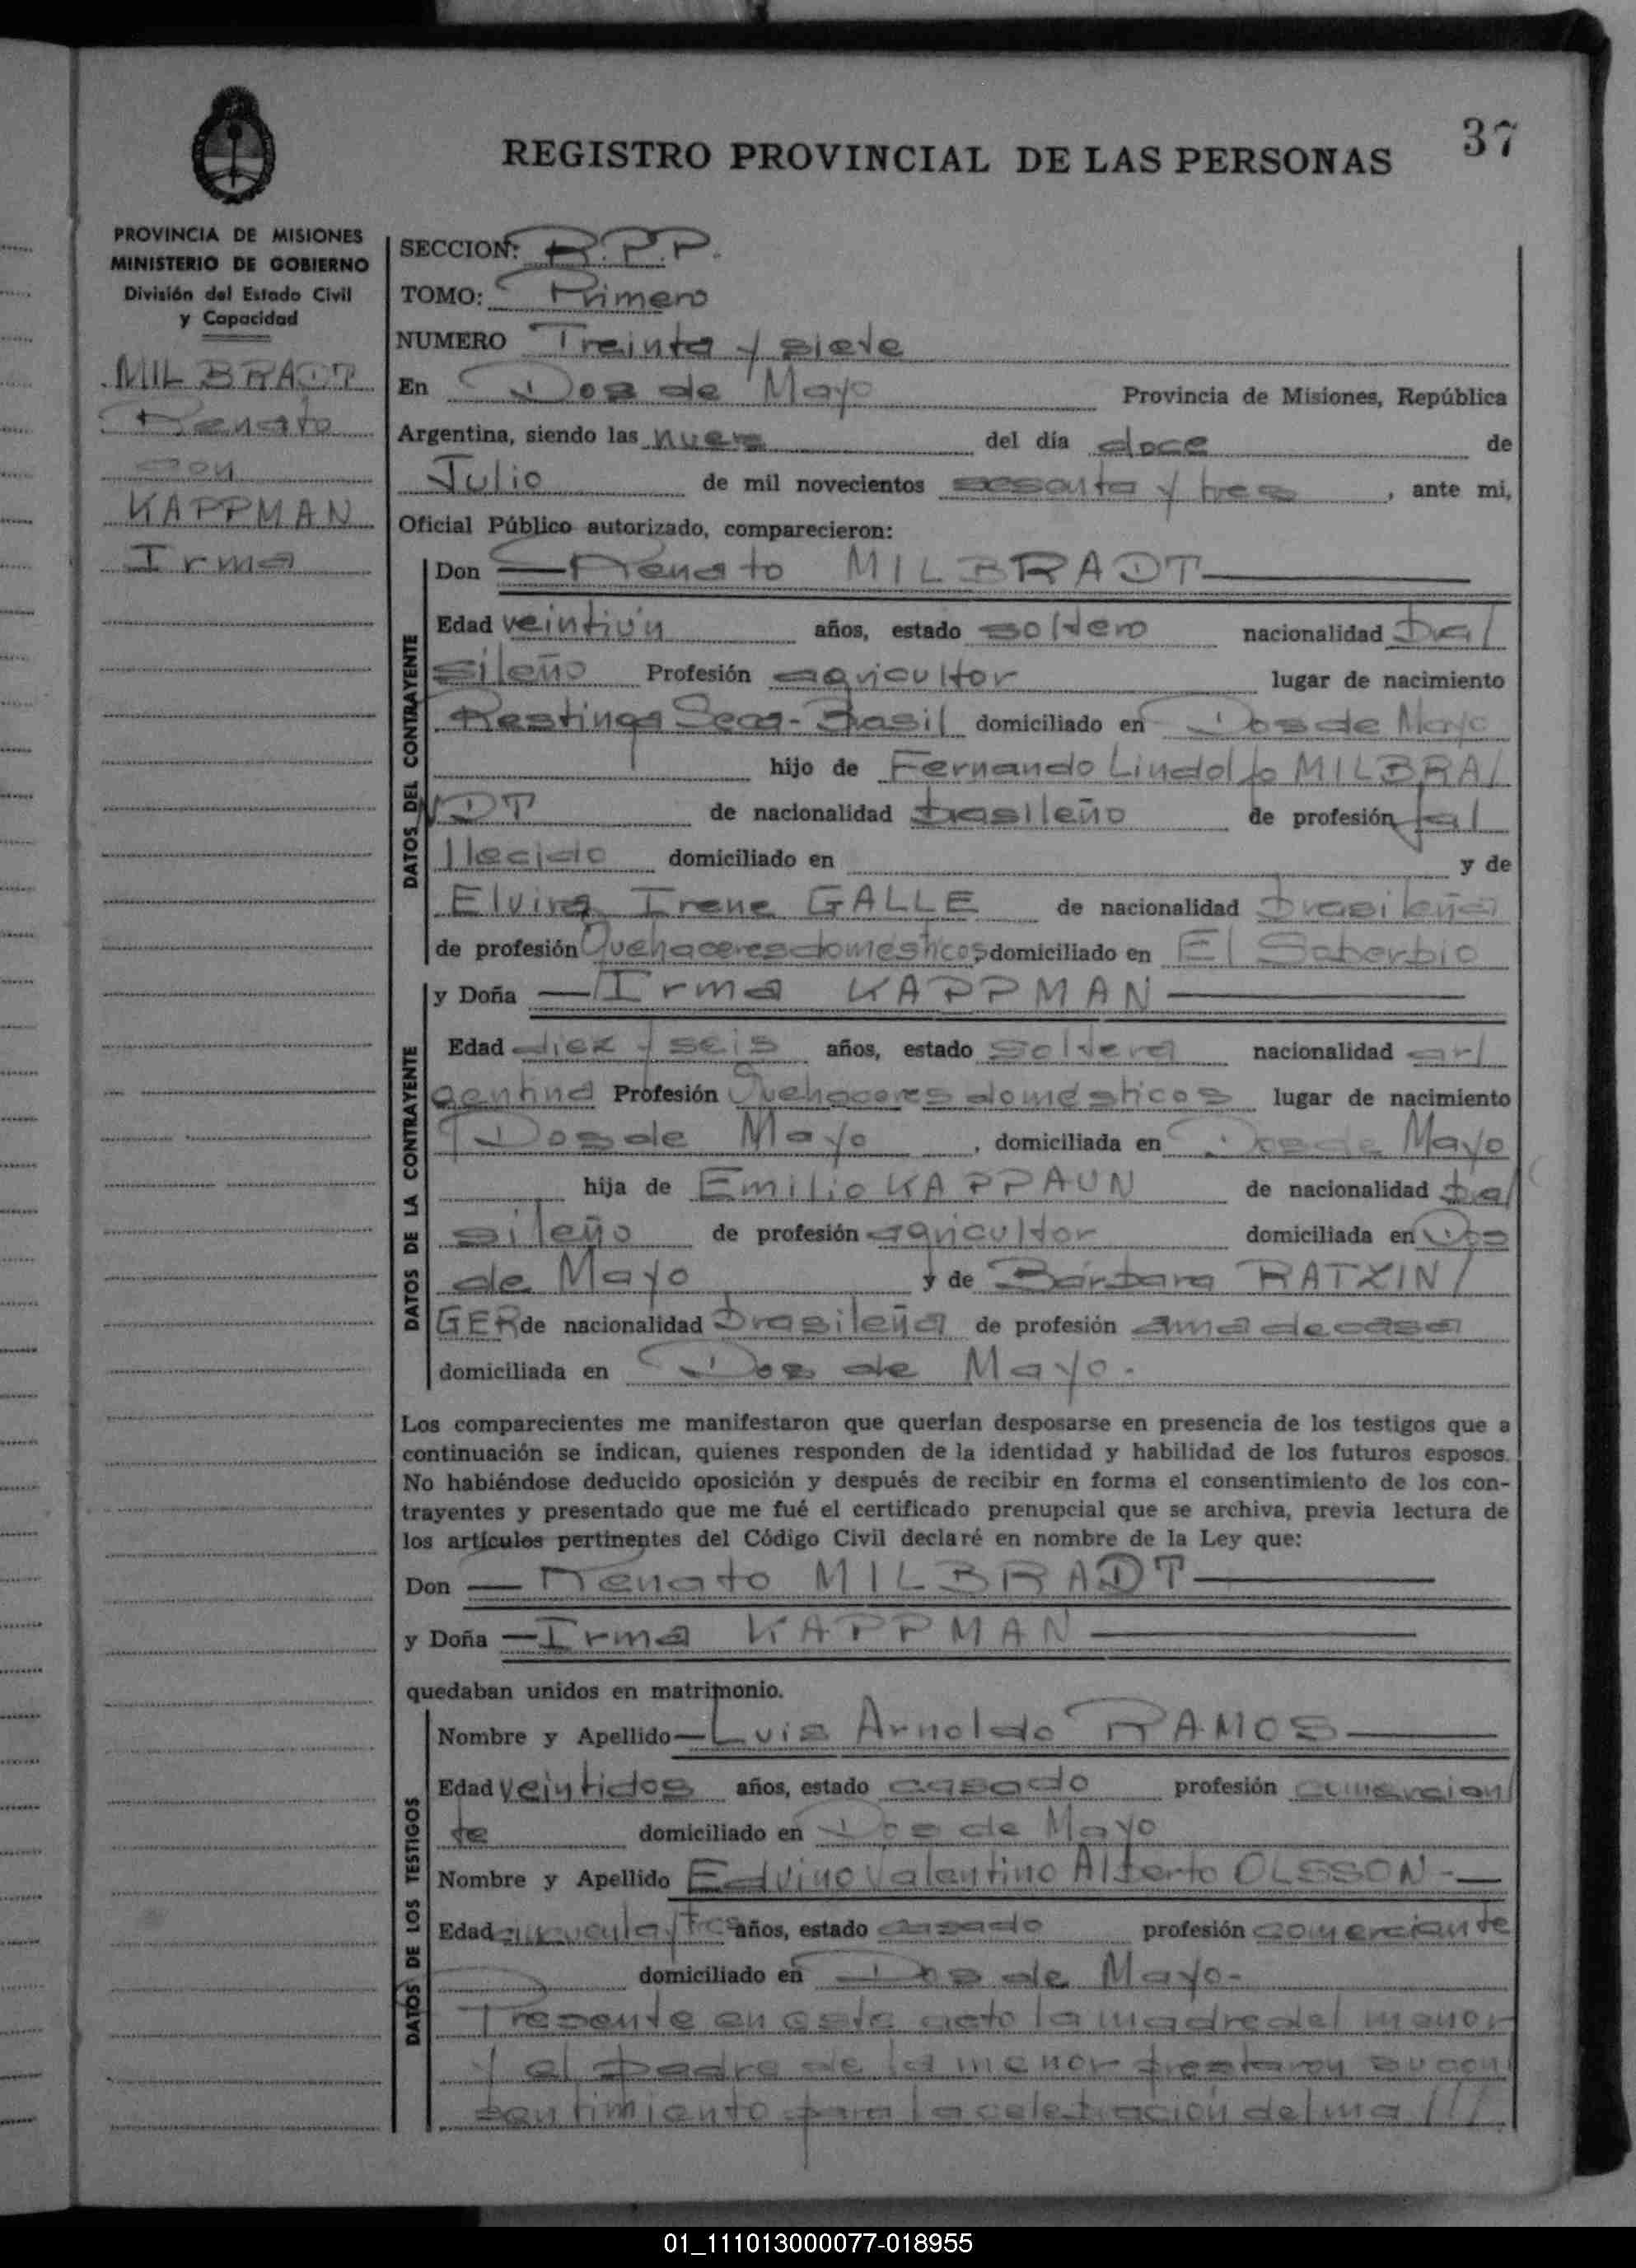 37
REGISTRO PROVINCIAL DE LAS PERSONAS
PROVINCIA DE MISIONES
MINISTERIO DE GOBIERNO
División del Estado Civil
y Capacidad
MILBRADT
Renato
con
KAPPMAN
Irma
SECCION: R.P.P.
TOMO: Primero
NUMERO Treinta y siete
En Dos de Mayo Provincia de Misiones, República
Argentina, siendo las nueve del día doce de
Julio de mil novecientos sesenta y tres, ante mi,
Oficial Público autorizado, comparecieron:
DATOS DEL CONTRAYENTE
Don Renato MILBRADT
Edad veintiún años, estado soltero nacionalidad bra/
sileño Profesión agricultor lugar de nacimiento
Restinga Seca-Brasil domiciliado en Dos de Mayo
hijo de Fernando Lindolfo MILBRA/
DT de nacionalidad brasileño de profesión fal/
llecido domiciliado en y de
Elvira Irene GALLE de nacionalidad brasileña
de profesión Quehaceres domésticos domiciliado en El Soberbio
DATOS DE LA CONTRAYENTE
y Doña Irma KAPPMAN
Edad diez y seis años, estado soltera nacionalidad ar/
gentina Profesión Quehaceres domésticos lugar de nacimiento
Dos de Mayo, domiciliada en Dos de Mayo
hija de Emilio KAPPAUN de nacionalidad bra/
sileño de profesión agricultor domiciliada en Dos
de Mayo y de Bárbara RATZIN/
GER de nacionalidad brasileña de profesión ama de casa
domiciliada en Dos de Mayo.
Los comparecientes me manifestaron que querían desposarse en presencia de los testigos que a
continuación se indican, quienes responden de la identidad y habilidad de los futuros esposos.
No habiéndose deducido oposición y después de recibir en forma el consentimiento de los con-
trayentes y presentado que me fué el certificado prenupcial que se archiva, previa lectura de
los artículos pertinentes del Código Civil declaré en nombre de la Ley que:
Don Renato MILBRADT
y Doña Irma KAPPMAN
quedaban unidos en matrimonio.
DATOS DE LOS TESTIGOS
Nombre y Apellido Luis Arnoldo RAMOS
Edad veintidos años, estado casado profesión comercian/
te domiciliado en Dos de Mayo
Nombre y Apellido Edvino Valentino Alberto OLSSON-
Edad cincuenta y tres años, estado casado profesión comerciante
domiciliado en Dos de Mayo-
Presente en este acto la madre del menor
y el padre de la menor prestaron su con/
sentimiento para la celebración del ma///
01_111013000077-018955